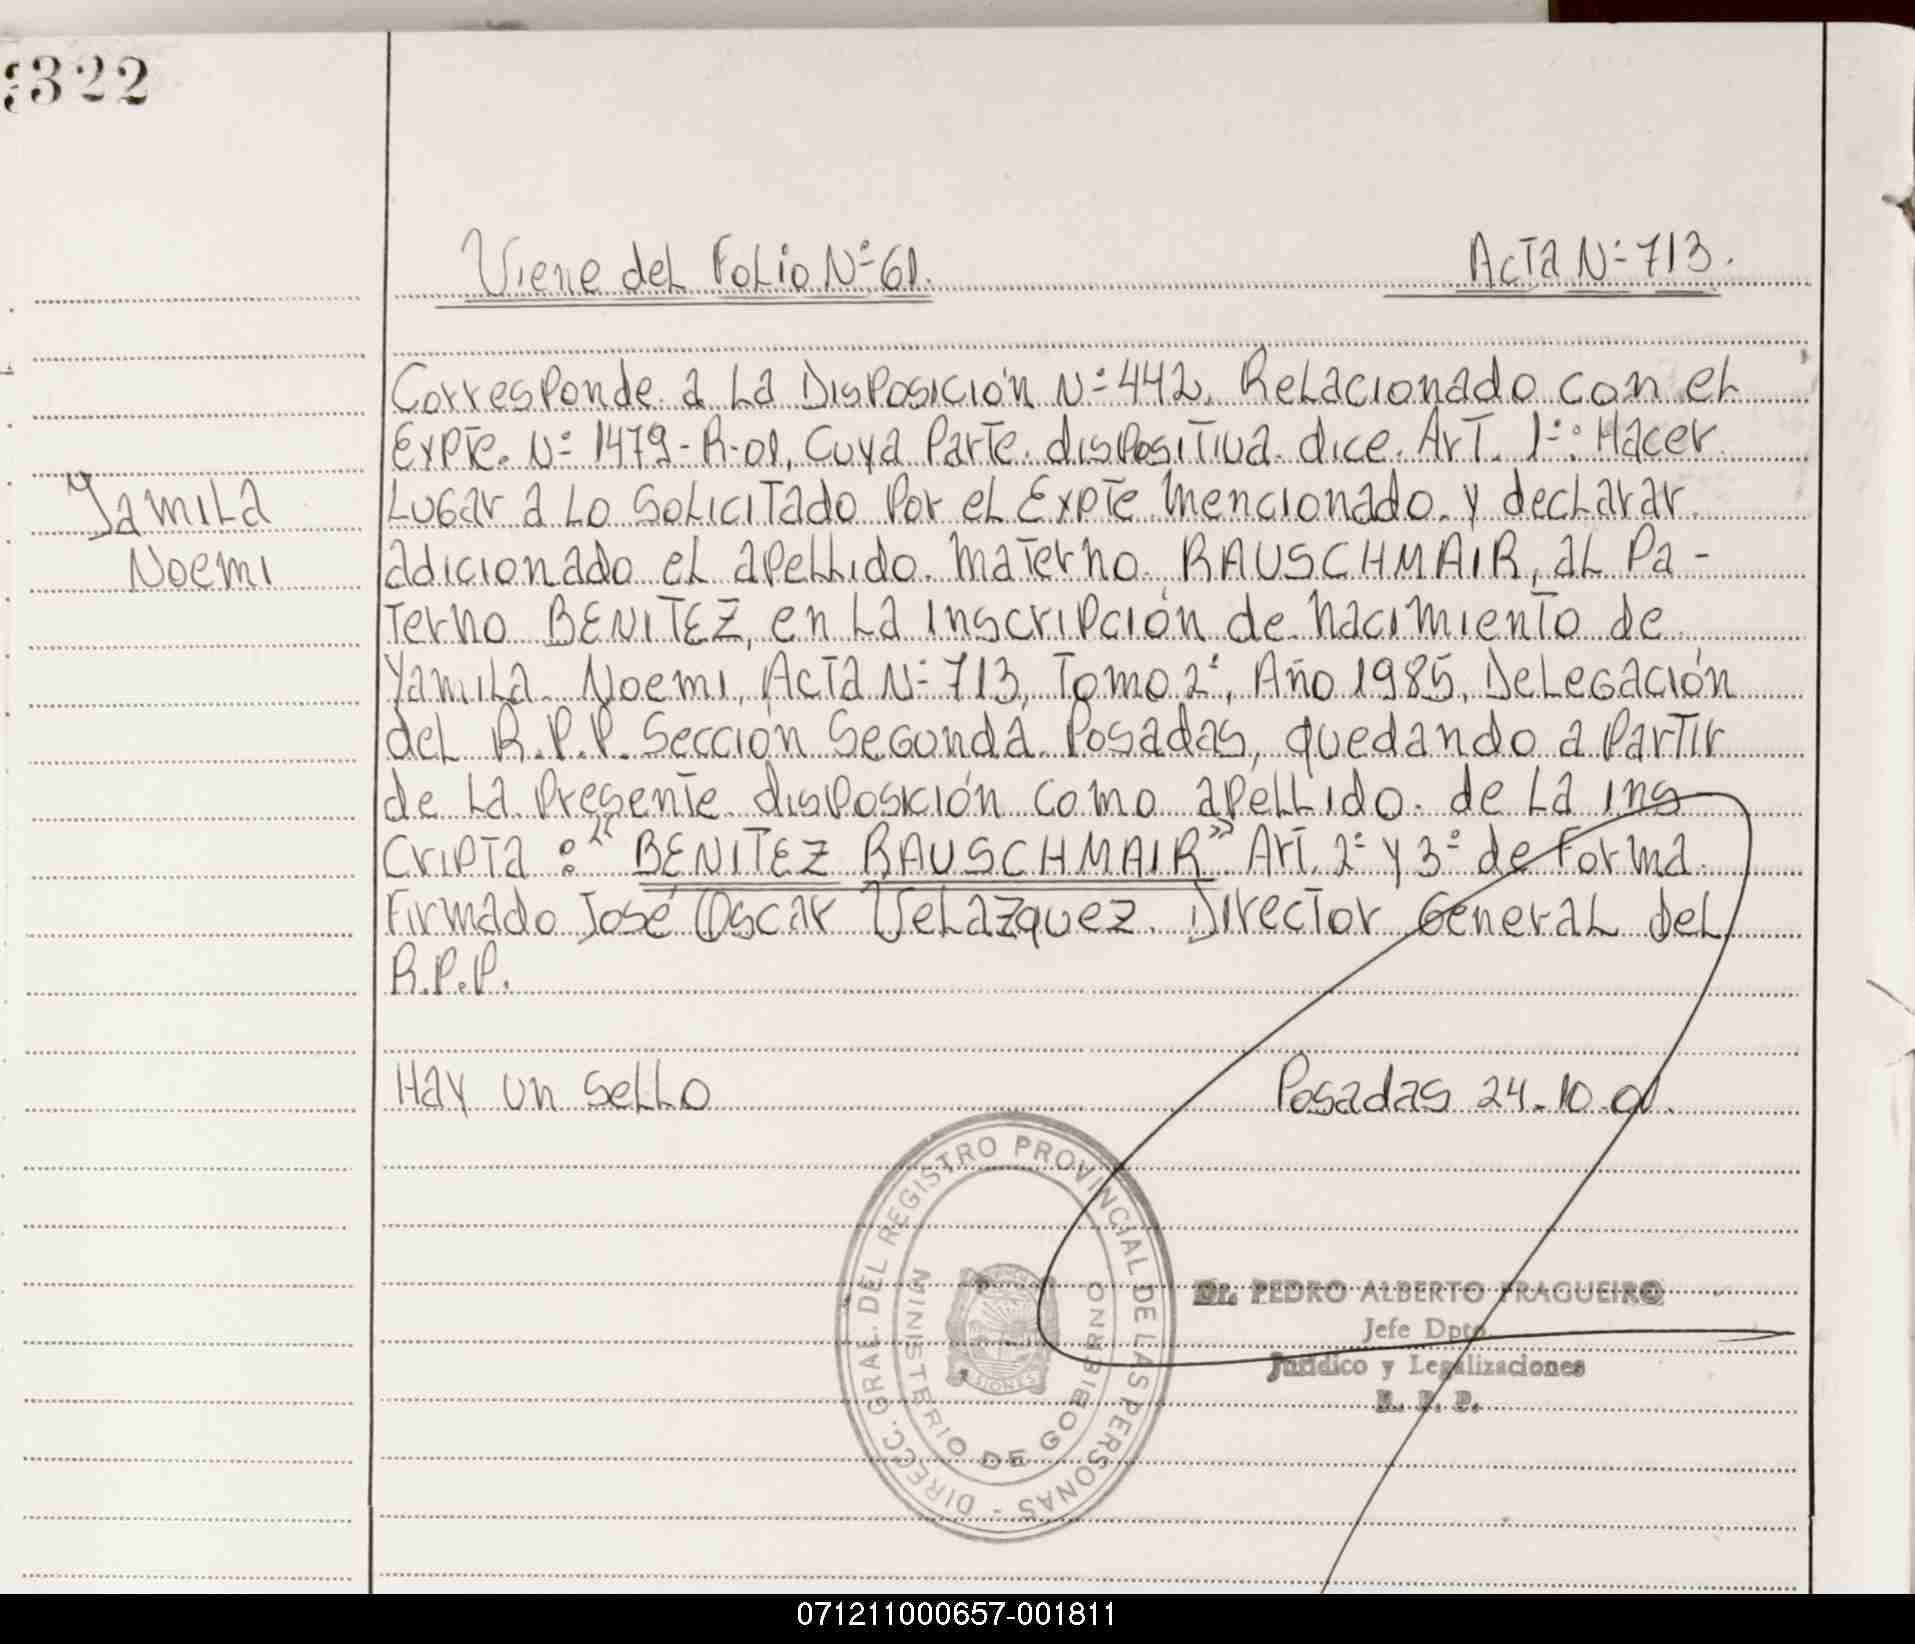 322
Viene del Folio Nº 61.
Acta Nº 713.
Corresponde a La Disposición Nº 442. Relacionado con el
Expte. Nº 1479-R-01, Cuya Parte dispositiva dice. Art. 1º: Hacer
Lugar a Lo Solicitado Por el Expte mencionado y declarar
adicionado el apellido materno RAUSCHMAIR, al Pa-
terno BENITEZ, en La inscripción de nacimiento de
Yamila Noemi, Acta Nº 713, Tomo 2º, Año 1985, Delegación
del R.P.P. Sección Segunda Posadas, quedando a Partir
de La Presente disposición como apellido de La ins
cripta : "BENITEZ RAUSCHMAIR" Art. 2º y 3º de forma
Firmado José Oscar Velazquez. Director General del
R.P.P.
Yamila
Noemi
Hay un sello
Posadas 24-10-01.
DIRECC. GRAL. DEL REGISTRO PROVINCIAL DE LAS PERSONAS -
MINISTERIO DE GOBIERNO
SIONES
Dr. PEDRO ALBERTO FRAGUEIRO
Jefe Dpto
Jurídico y Legalizaciones
R. P. P.
071211000657-001811